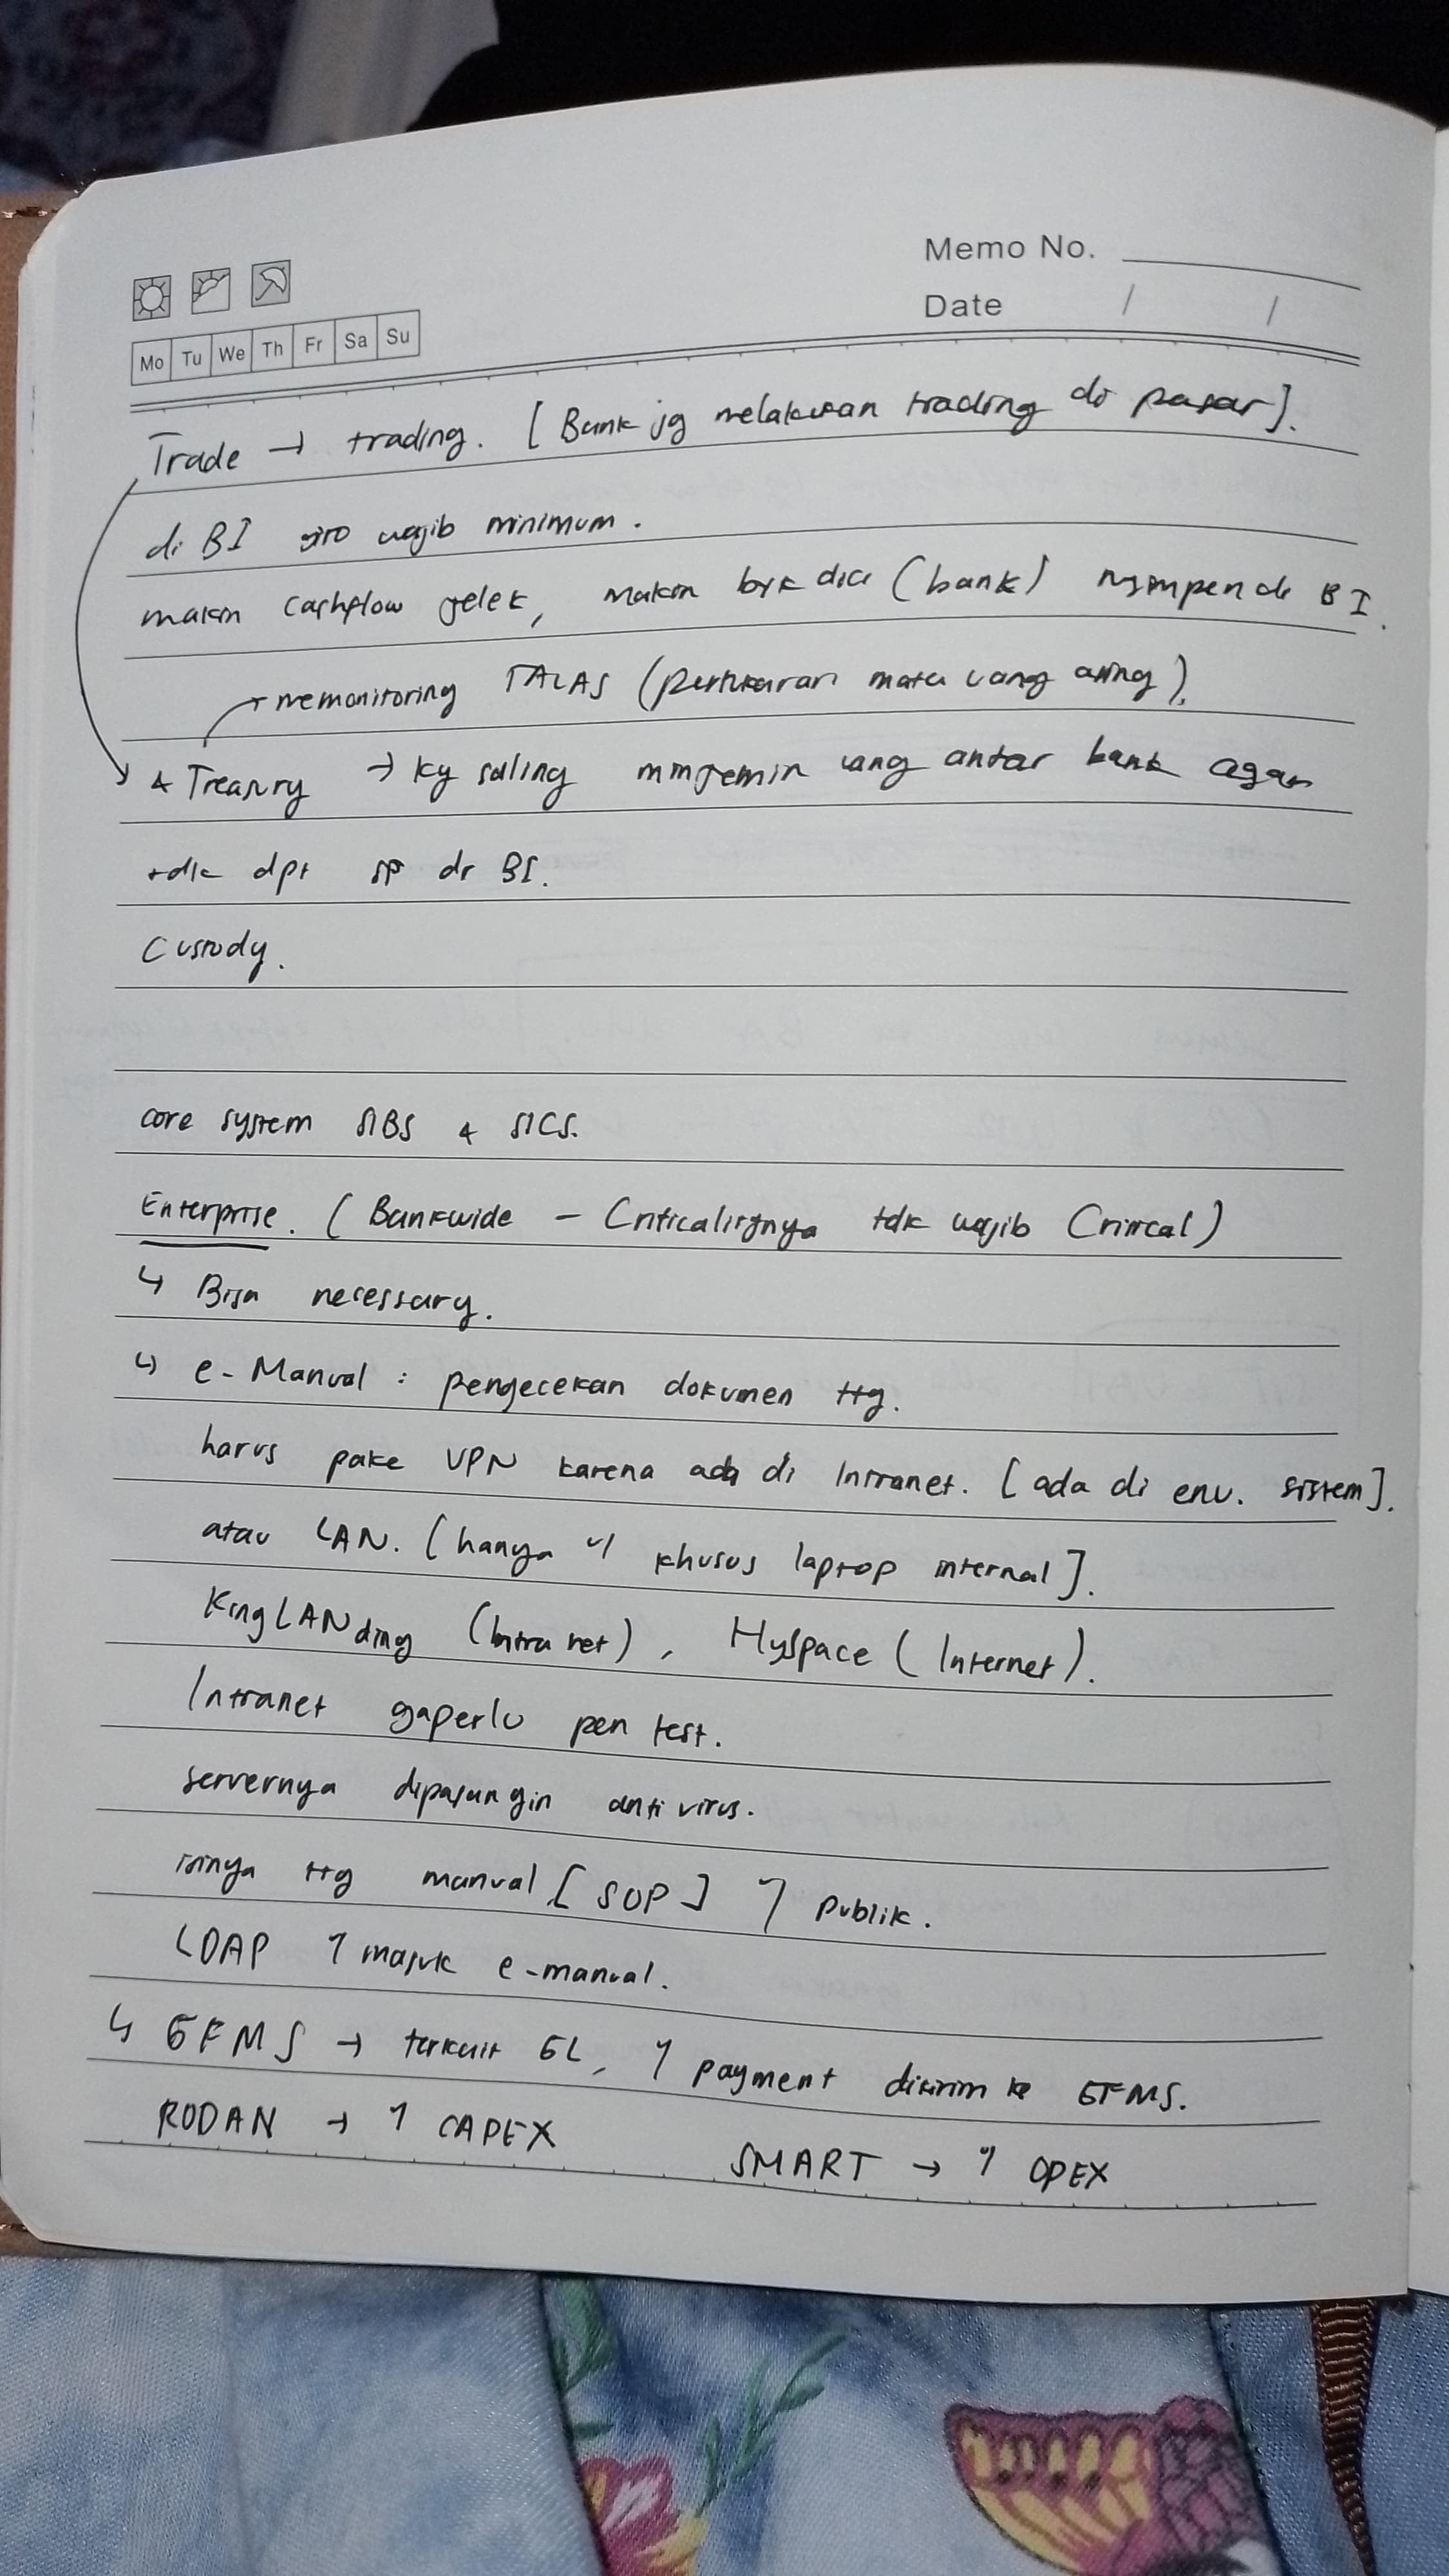 Memo No.
Date / /
Mo Tu We Th Fr Sa Su
Trade → trading. [Bank jg melakukan trading di pasar].
di BI giro wajib minimum.
makin cashflow jelek, makin byk dia (bank) nyimpen di BI.
→ memonitoring TALAS (pertukaran mata uang asing).
& Treasury → ky saling minjemin uang antar bank agar
tdk dpt SP dr BI.
Custody.
core system SIBS & SICS.
Enterprise. (Bankwide - Criticalitynya tdk wajib Critical)
↳ Bisa necessary.
↳ e-Manual : pengecekan dokumen ttg.
harus pake VPN karena ada di Intranet. [ada di env. sistem].
atau LAN. [hanya u/ khusus laptop internal].
KingLANding (Intranet), HySpace (Internet).
Intranet gaperlu pen test.
servernya dipasangin anti virus.
isinya ttg manual [SOP] u/ publik.
LDAP u/ masuk e-manual.
↳ EFMS → terkait GL, u/ payment dikirim ke EFMS.
RODAN → u/ CAPEX SMART → u/ OPEX